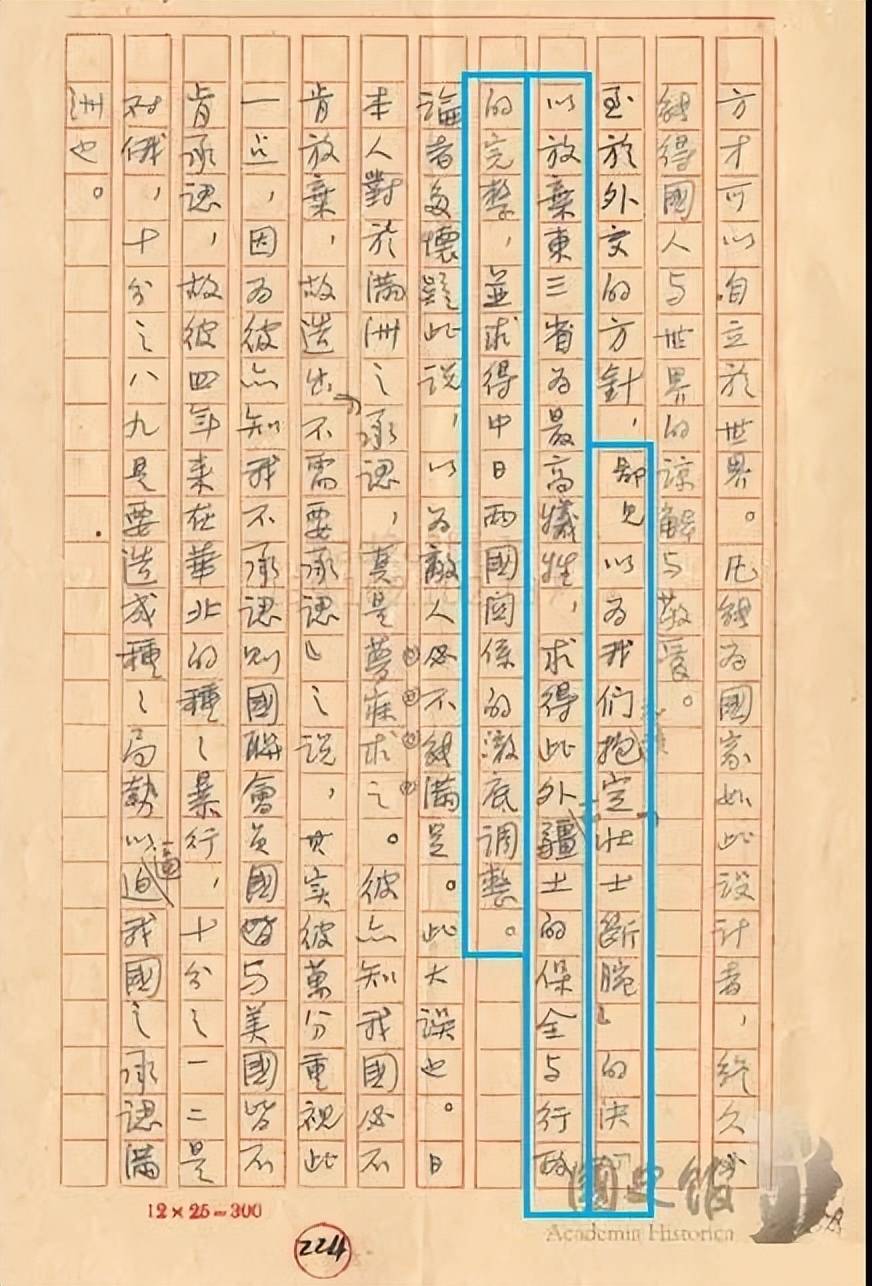 方才可以自立於世界。凡能為國家如此設計者，終久必
能得國人與世界的諒解与敬愛。
至於外交的方針，鄙見以為我们抱定「壮士断腕」的决心
以放棄東三省為最高犧牲，求得此外疆土的保全与行政
的完整，並求得中日兩國関係的澈底調整。
論者多懷疑此説，以為敵人必不能滿足。此大误也。日
本人對於滿洲之承認，真是夢寐求之。彼亦知我國必不
肯放棄，故造出「不需要承認」之説，其实彼萬分重視此
一点，因为彼亦知我不承認則國聯會员國皆与美國皆不
肯承認，故彼四年来在華北的種種暴行，十分之一二是
对俄，十分之八九是要造成種種局勢以逼迫我國之承認滿
洲也。
12×25=300
224
國史館
Academia Historica